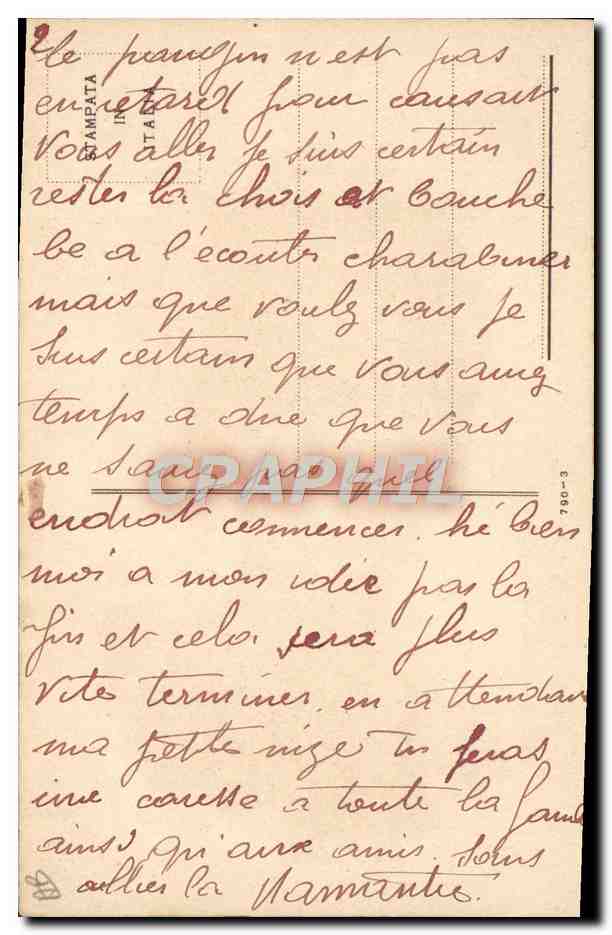 2
le pas
en retard pour causait
vous aller je suis certain
rester la chois et bouche
be a l'écouter charabiner
mais que voulez vous je
suis certain que vous avez
temps a dire que vous
ne savez pas quel
endroit commencer. hé bien
moi a mon idie par la
fin et cela sera plus
vite terminer. en attendant
ma petite tu feras
une caresse a toute la
ainsi qu'aux amis. sans
oublier la
STAMPATA
IN
ITALIA
CPAPHIL
790-3